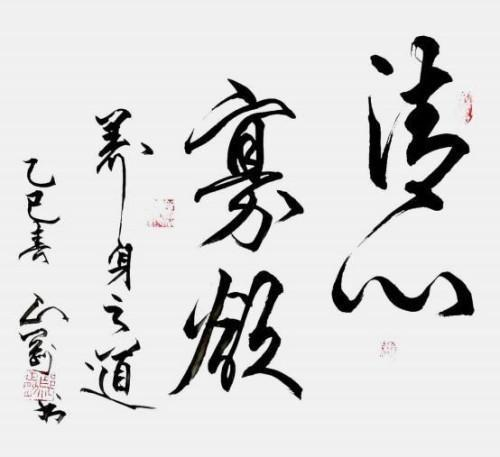 清心
寡欲
养身之道
乙巳春 山菊书